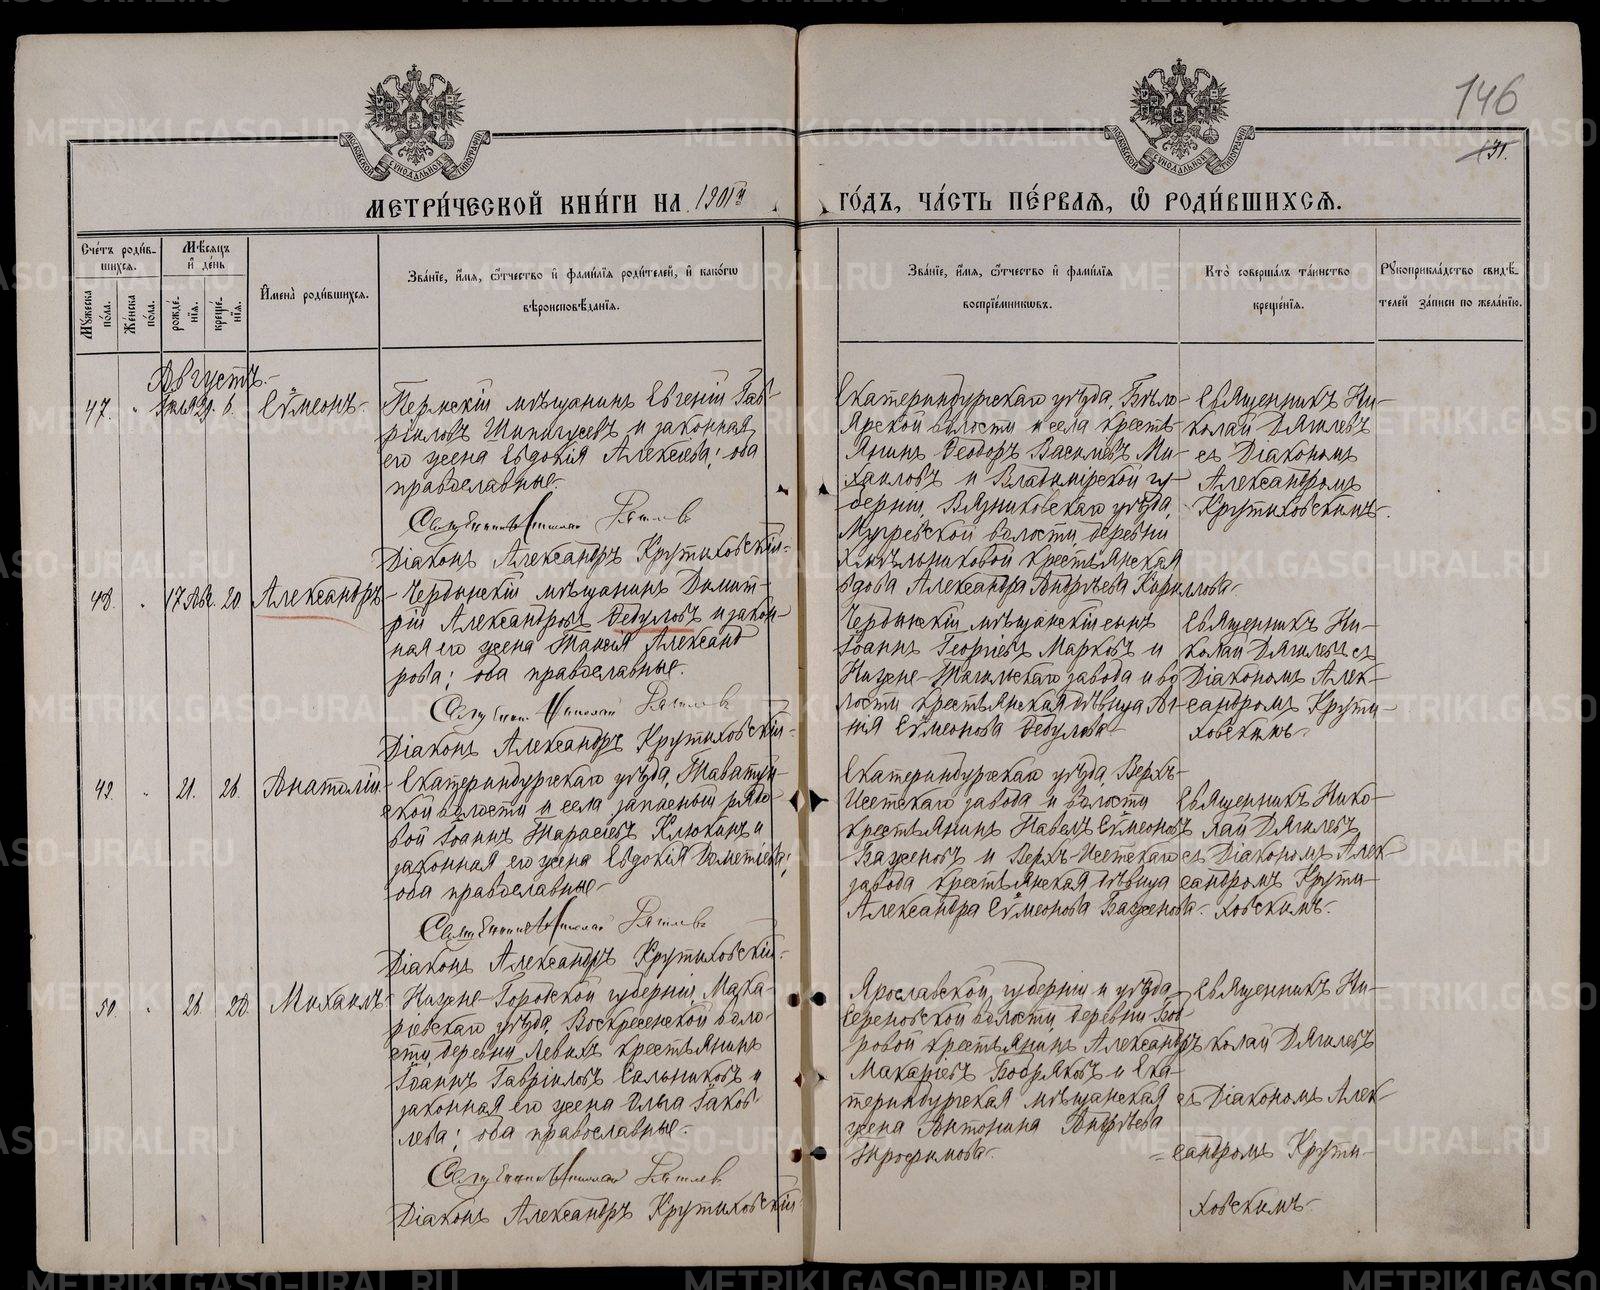 146
31.
МЕТРИ́ЧЕСКОЙ КНИ́ГИ НА 1901й ГО́ДЪ, ЧА́СТЬ ПЕ́РВАЯ, Ѡ РОДИ́ВШИХСѦ.
Сче́тъ роди́вшихсѧ.
Мꙋ́жеска по́ла.
Же́нска по́ла.
Мѣ́сѧцъ и҆ де́нь
рожде́нїѧ.
креще́нїѧ.
И҆мена̀ роди́вшихсѧ.
Зва́нїе, и҆́мѧ, ѻ҆́тчество и҆ фами́лїѧ роди́телей, и҆ како́гѡ
вѣроисповѣ́данїѧ.
Зва́нїе, и҆́мѧ, ѻ҆́тчество и҆ фами́лїѧ
воспрїе́мникѡвъ.
Кто̀ соверша́лъ та́инство
креще́нїѧ.
Рꙋкоприкла́дство свидѣ́телей за́писи по жела́нїю.
Августъ.
47. " 6. Сѵмеонъ.
Пермскій мѣщанинъ Евгеній Гав-
ріиловъ Шипигусевъ и законная
его жена Евдокія Алексіева; оба
православные.
Священникъ Николай Дягилевъ
Діаконъ Александръ Крутиховскій.
Екатеринбургскаго уѣзда, Бѣло-
Ярской волости и села кресть-
янинъ Ѳеодоръ Васильевъ Ми-
хаиловъ и Владимірской гу-
берніи, Вязниковскаго уѣзда,
Мугреевской волости, деревни
крестьянская
вдова Александра Андреева Кириллова.
Священникъ Ни-
колай Дягилевъ
съ Діакономъ
Александромъ
Крутиховскимъ.
48. " 17 Авг. 20 Александръ
Чердынскій мѣщанинъ Димит-
рій Александровъ Ѳедуловъ и закон-
ная его жена Таисія Александ
рова; оба православные.
Священникъ Николай Дягилевъ
Діаконъ Александръ Крутиховскій.
Чердынскій мѣщанскій сынъ
Іоаннъ Георгіевъ Марковъ и
Нижне-Тагильскаго завода и во
лости крестьянская дѣвица Ев-
нія Сѵмеонова Ѳедулова
Священникъ Ни-
колай Дягилевъ съ
Діакономъ Алек-
сандромъ Крути-
ховскимъ.
49. " 21. 26. Анатолій.
Екатеринбургскаго уѣзда, Таватуй-
ской волости и села запасный рядо-
вой Іоаннъ Тарасіевъ Клюкинъ и
законная его жена Евдокія Дометіева;
оба православные
Священникъ Николай Дягилевъ
Діаконъ Александръ Крутиховскій.
Екатеринбургскаго уѣзда, Верхъ-
Исетскаго завода и волости
крестьянинъ Павелъ Сѵмеоновъ
Баженовъ и Верхъ-Исетскаго
завода крестьянская дѣвица
Александра Сѵмеонова Баженова.
Священникъ Нико-
лай Дягилевъ
съ Діакономъ Алек-
сандромъ Крути-
ховскимъ.
50. " 26. 28. Михаилъ
Нижне-Городской губерніи, Мака-
ріевскаго уѣзда, Воскресенской воло-
сти, деревни Левихъ крестьянинъ
Іоаннъ Гавріиловъ Сальниковъ и
законная его жена Ольга Іаков
лева; оба православные.
Священникъ Николай Дягилевъ
Діаконъ Александръ Крутиховскій
Ярославской губерніи и уѣзда
Сереновской волости, деревни Боб
ровой крестьянинъ Александръ
Макаріевъ Бобряковъ и Ека-
теринбургская мѣщанская
жена Антонина Андреева
Трофимова.
Священникъ Ни-
колай Дягилевъ
съ Діакономъ Алек-
сандромъ Крути-
ховскимъ.